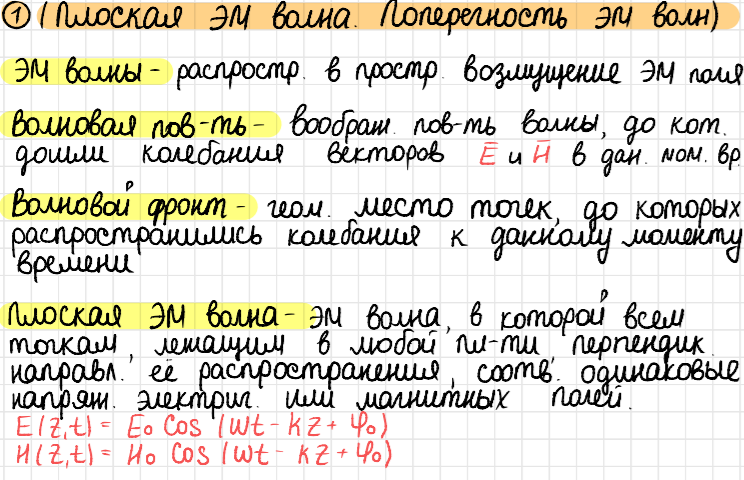 ① (Плоская ЭМ волна. Поперечность ЭМ волн)
ЭМ волны - распростр. в простр. возмущение ЭМ поля
Волновая пов-ть - воображ. пов-ть волны, до кот.
дошли колебания векторов E̅ и H̅ в дан. мом. вр.
Волновой фронт - геом. место точек, до которых
распространились колебания к данному моменту
времени
Плоская ЭМ волна - ЭМ волна, в которой всем
точкам, лежащим в любой пл-ти перпендик.
направл. её распространения, соотв. одинаковые
напряж. электрич. или магнитных полей.
E(z,t) = E₀ cos (ωt - kz + φ₀)
H(z,t) = H₀ cos (ωt - kz + φ₀)